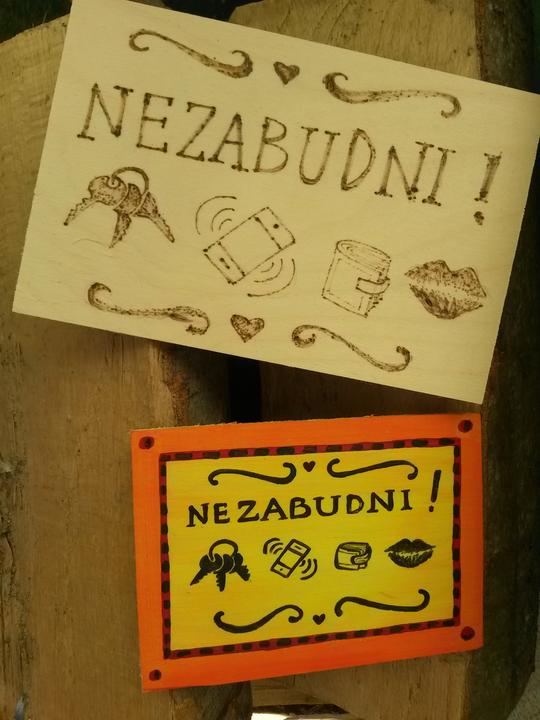 NEZABUDNI !
NEZABUDNI !